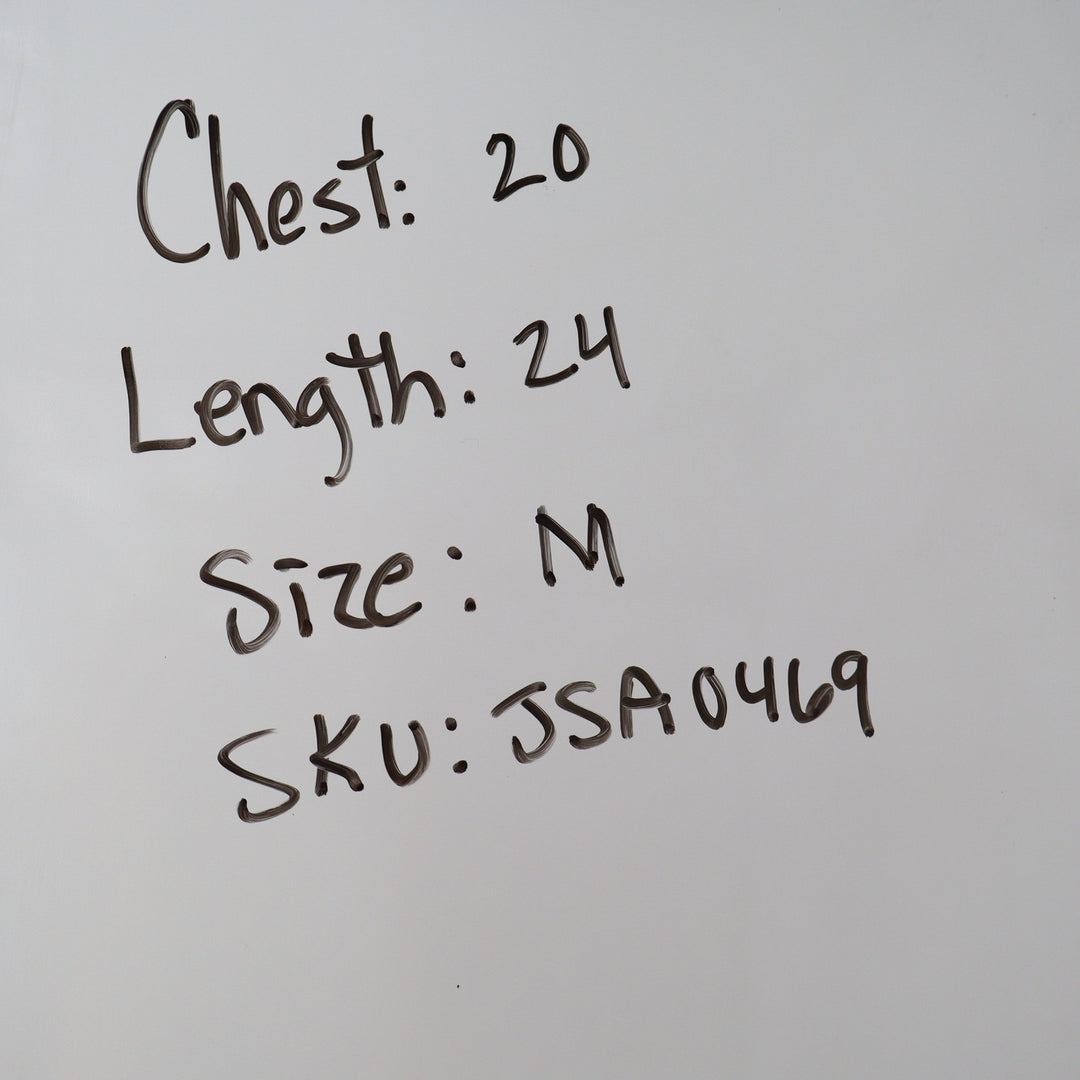 Chest: 20
Length: 24
Size: M
SKU: JSA0469